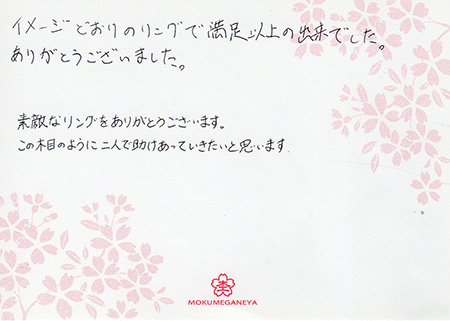 イメージどおりのリングで満足以上の出来でした。
ありがとうございました。
素敵なリングをありがとうございます。
この木目のように二人で助けあっていきたいと思います.
MOKUMEGANEYA